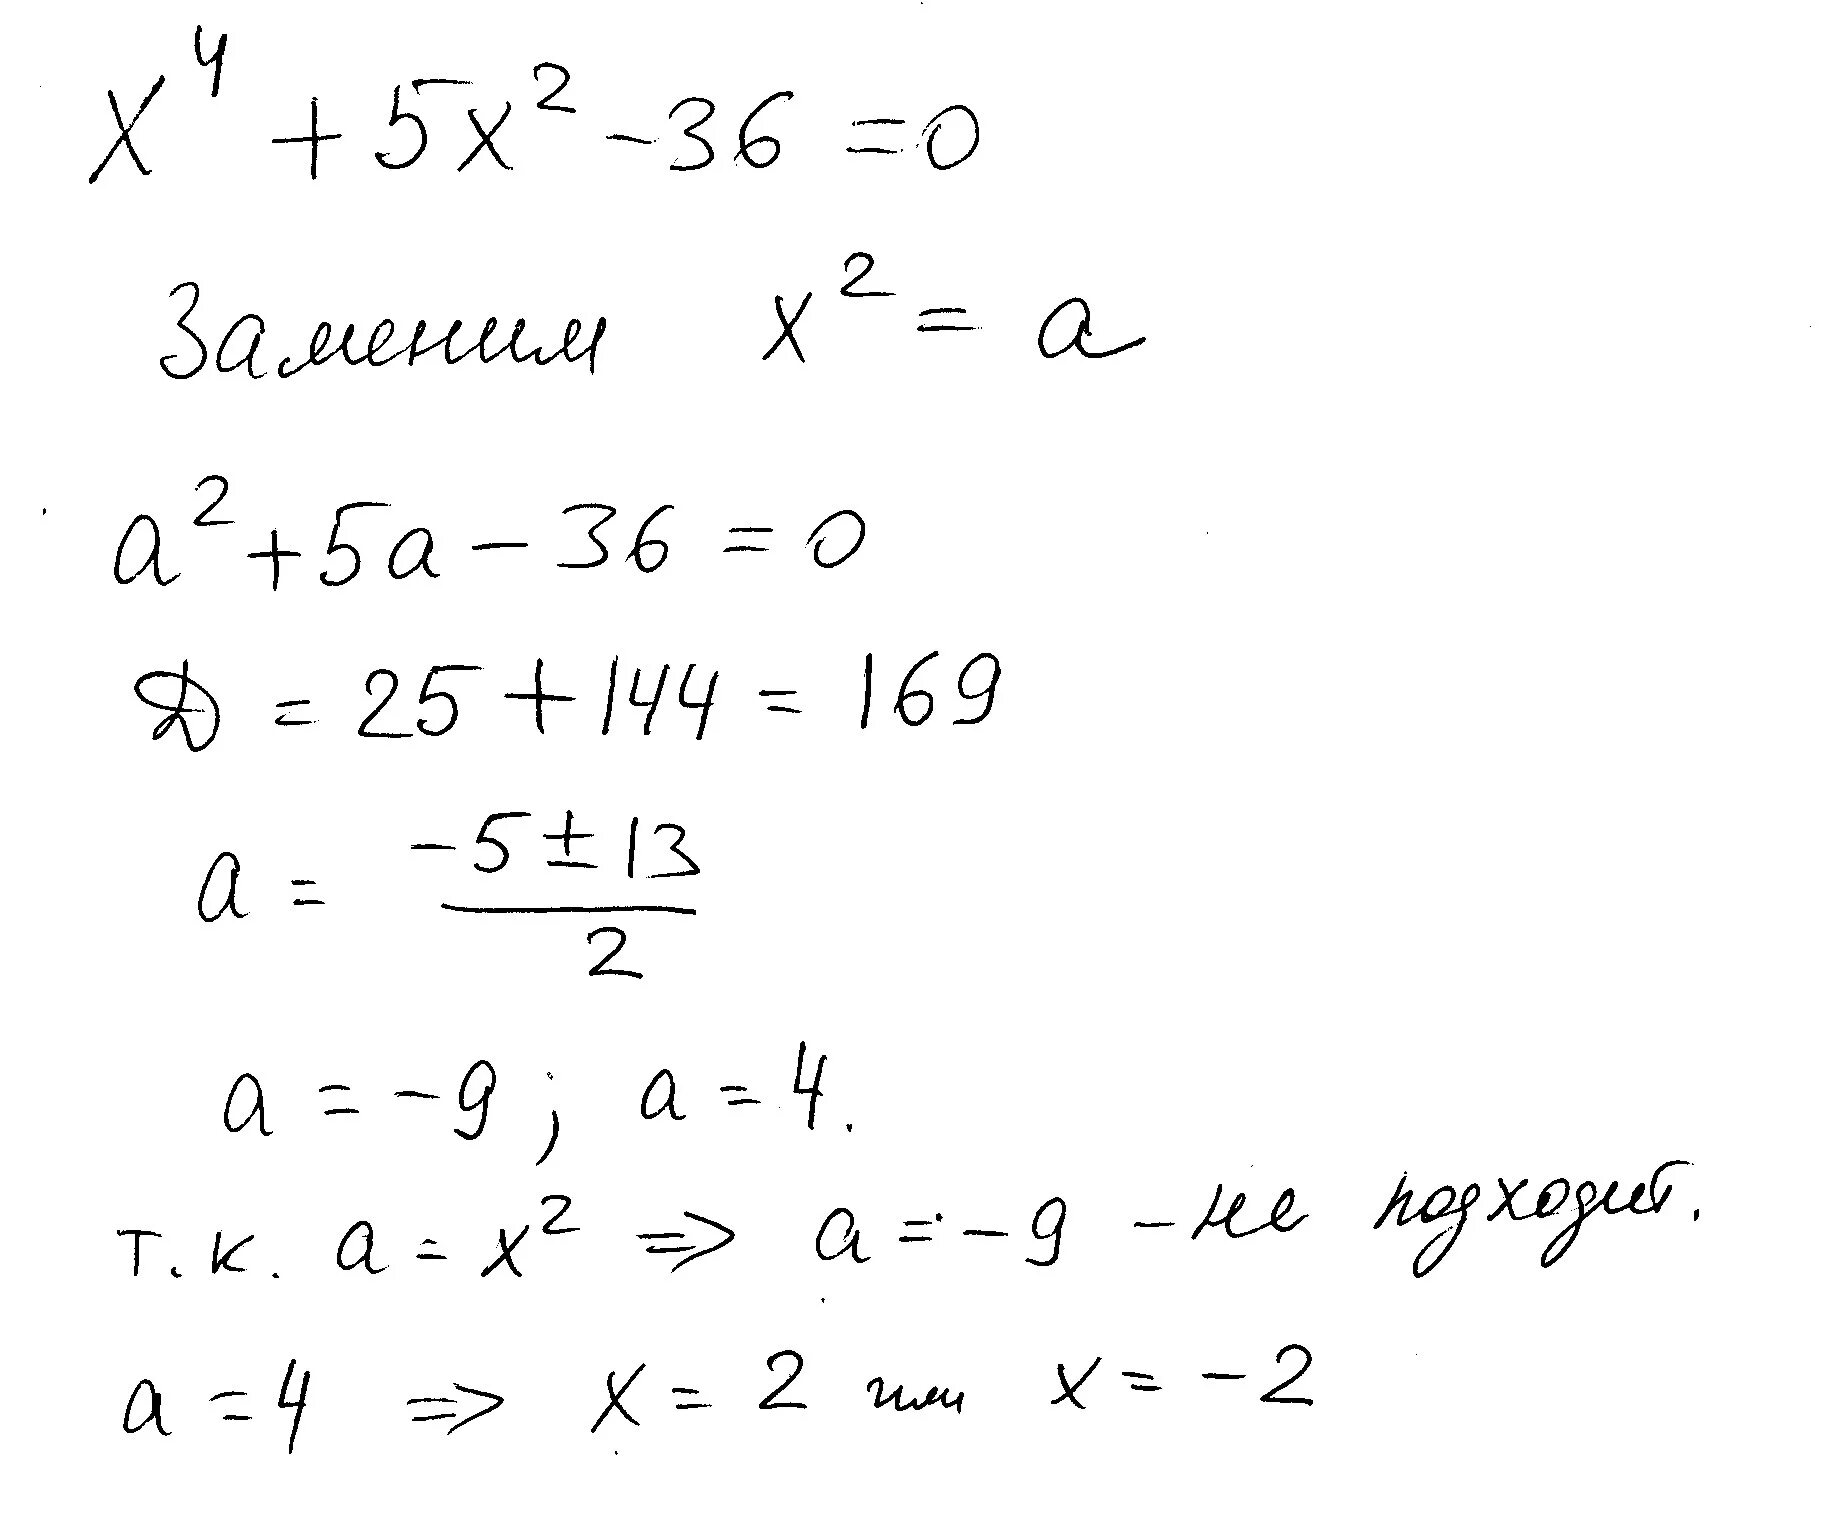 x⁴ + 5x² - 36 = 0
Заменим x² = a
a² + 5a - 36 = 0
D = 25 + 144 = 169
a = (-5 ± 13) / 2
a = -9 ; a = 4.
т.к. a = x² ⇒ a = -9 - не подходит.
a = 4 ⇒ x = 2 или x = -2